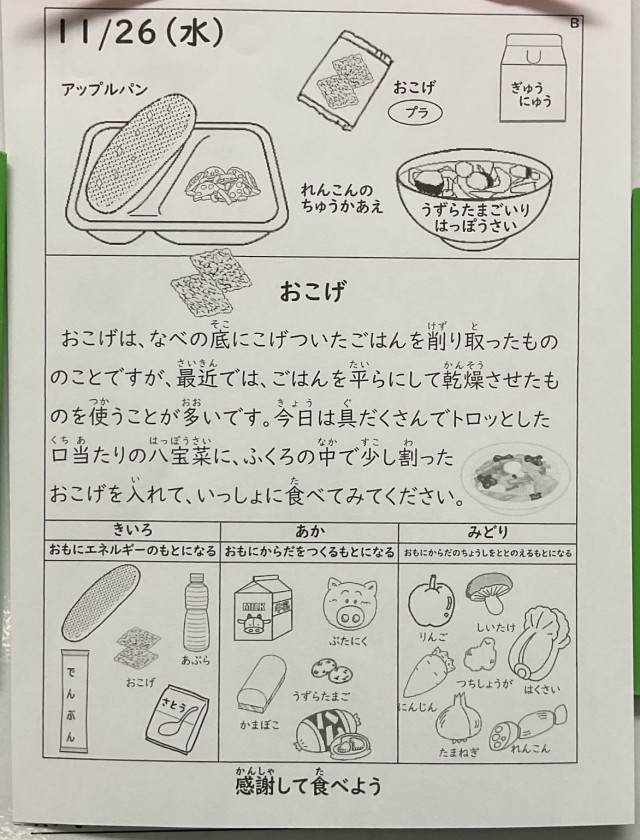 11/26(水)
B
アップルパン
おこげ
プラ
ぎゅう
にゅう
れんこんの
ちゅうかあえ
うずらたまごいり
はっぽうさい
おこげ
おこげは、なべの底にこげついたごはんを削り取ったもの
のことですが、最近では、ごはんを平らにして乾燥させたも
のを使うことが多いです。今日は具だくさんでトロッとした
口当たりの八宝菜に、ふくろの中で少し割った
おこげを入れて、いっしょに食べてみてください。
きいろ
おもにエネルギーのもとになる
あぶら
おこげ
でんぷん
さとう
あか
おもにからだをつくるもとになる
MILK
ぶたにく
うずらたまご
かまぼこ
みどり
おもにからだのちょうしをととのえるもとになる
りんご
しいたけ
つちしょうが
はくさい
にんじん
たまねぎ
れんこん
感謝して食べよう